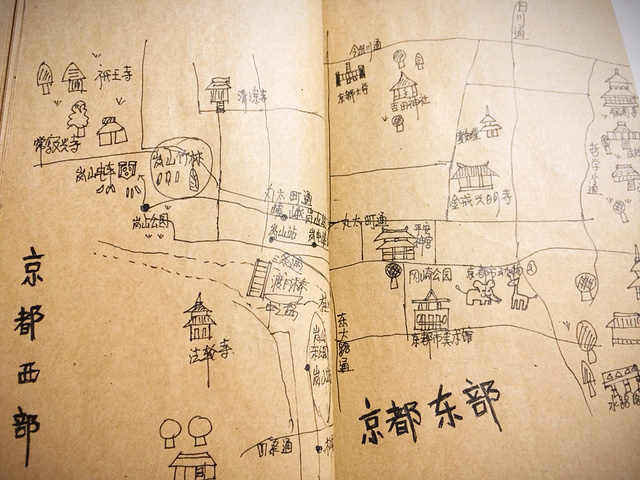 祇王寺
清凉寺
常寂光寺
岚山竹林
岚山电车
岚山公园
丸太町通
岚山站
渡月桥
法轮寺
四条通
京都西部
白川通
今出川通
京都大学
吉田神社
银阁寺
哲学之道
金戒光明寺
丸太町通
平安
神宫
冈崎公园
京都市动物园
京都市美术馆
东大路通
京都东部